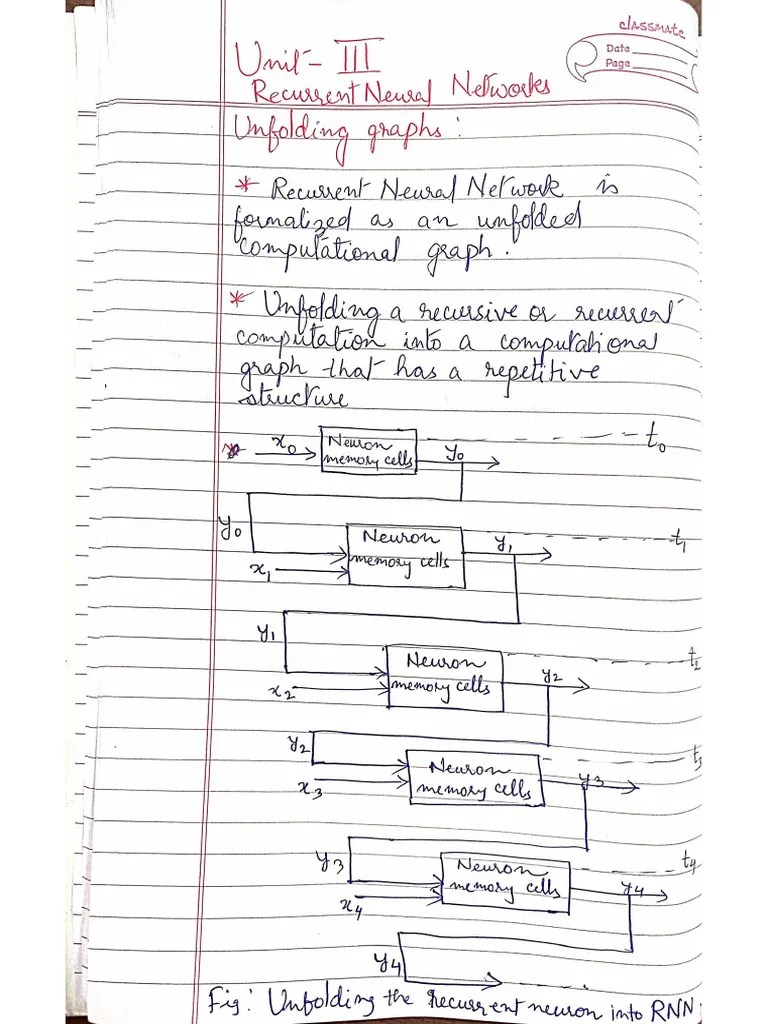 classmate
Date
Page
Unit - III
Recurrent Neural Networks
Unfolding graphs:
* Recurrent Neural Network is
formalized as an unfolded
computational graph.
* Unfolding a recursive or recurrent
computation into a computational
graph that has a repetitive
structure
x0 Neuron y0 t0
memory cells
y0 Neuron y1 t1
x1 memory cells
y1 Neuron y2 t2
x2 memory cells
y2 Neuron y3 t3
x3 memory cells
y3 Neuron y4 t4
x4 memory cells
y4
Fig: Unfolding the recurrent neuron into RNN